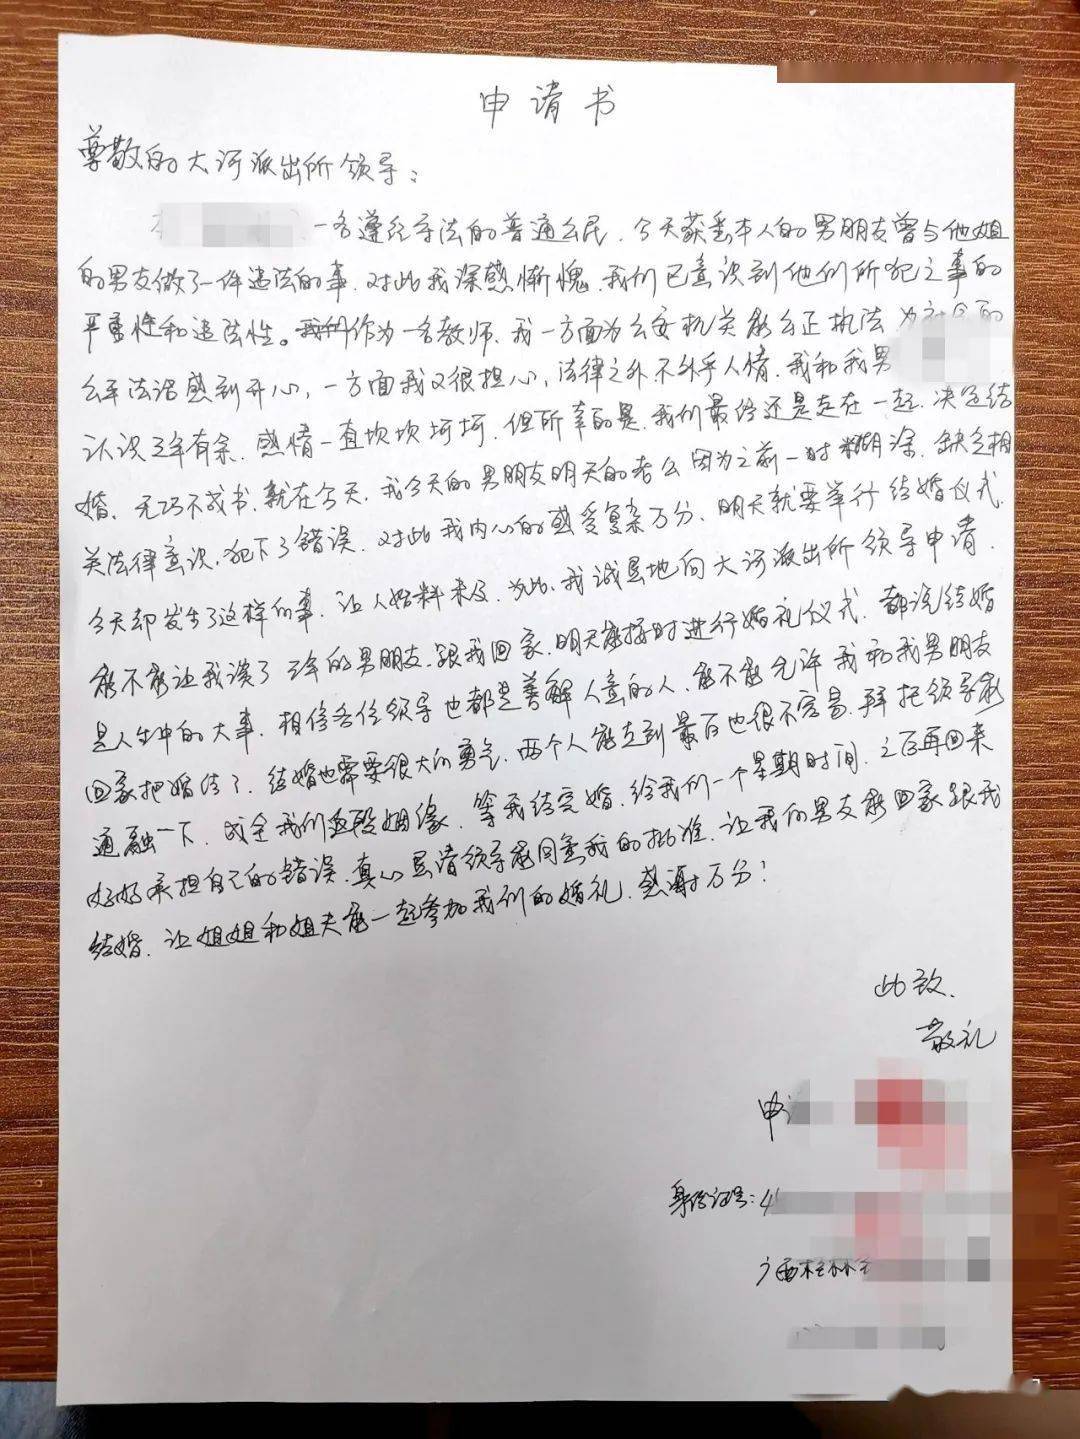 申请书
尊敬的大河派出所领导：
本 一名遵纪守法的普通公民，今天获悉本人的男朋友曾与他姐
的男友做了一件违法的事，对此我深感惭愧，我们已意识到他们所犯之事的
严重性和违法性。我们作为一名教师，我一方面为公安机关能公正执法，为社会的
公平法治感到开心，一方面我又很担心，法律之外不外乎人情，我和我男
认识三年有余，感情一直坎坎坷坷，但所幸的是，我们最终还是走在一起，决定结
婚，无巧不成书，就在今天，我今天的男朋友明天的老公因为之前一时糊涂，缺乏相
关法律意识，犯下了错误，对此我内心的感受复杂万分，明天就要举行结婚仪式，
今天却发生了这样的事，让人始料未及，为此，我诚恳地向大河派出所领导申请，
能不能让我谈了三年的男朋友跟我回家，明天能按时进行婚礼仪式，都说结婚
是人生中的大事，相信各位领导也都是善解人意的人，能不能允许我和我男朋友
回家把婚结了，结婚也需要很大的勇气，两个人能走到最后也很不容易，拜托领导能
通融一下，成全我们这段姻缘，等我结完婚，给我们一个星期时间，之后再回来
好好承担自己的错误，真心恳请领导能同意我的批准，让我的男友能回家跟我
结婚，让姐姐和姐夫能一起参加我们的婚礼，感谢万分！
此致，
敬礼
申
身份证号：4
广西桂林